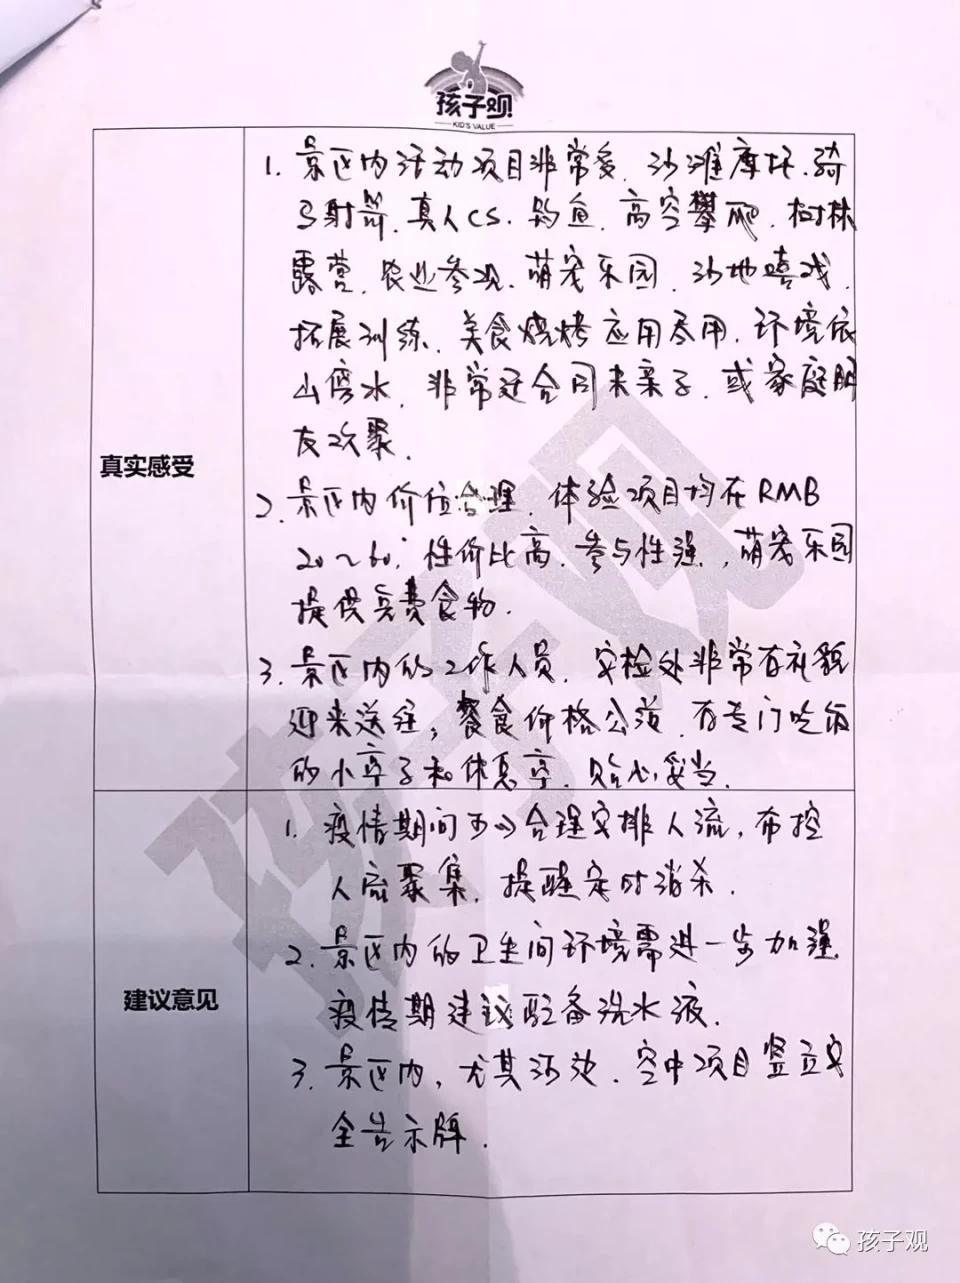 孩子观
KID'S VALUE
真实感受
1. 景区内活动项目非常多、沙滩摩托、骑
马射箭、真人CS、钓鱼、高空攀爬、树林
露营、农业参观、萌宠乐园、沙地嬉戏、
拓展训练、美食烧烤应用尽用,环境依
山傍水,非常适合同来亲子、或家庭朋
友欢聚.
2. 景区内价位合理,体验项目均在RMB
20~60,性价比高、参与性强,萌宠乐园
提供免费食物.
3. 景区内的工作人员、安检处非常有礼貌
迎来送往,餐食价格公道,有专门吃饭
的小亭子和休息亭,贴心妥当.
建议意见
1. 疫情期间可以合理安排人流,布控
人流聚集,提醒定时消杀.
2. 景区内的卫生间环境需进一步加强,
疫情期建议配备洗水液.
3. 景区内,尤其沙池、空中项目竖立安
全告示牌.
孩子观
孩子观